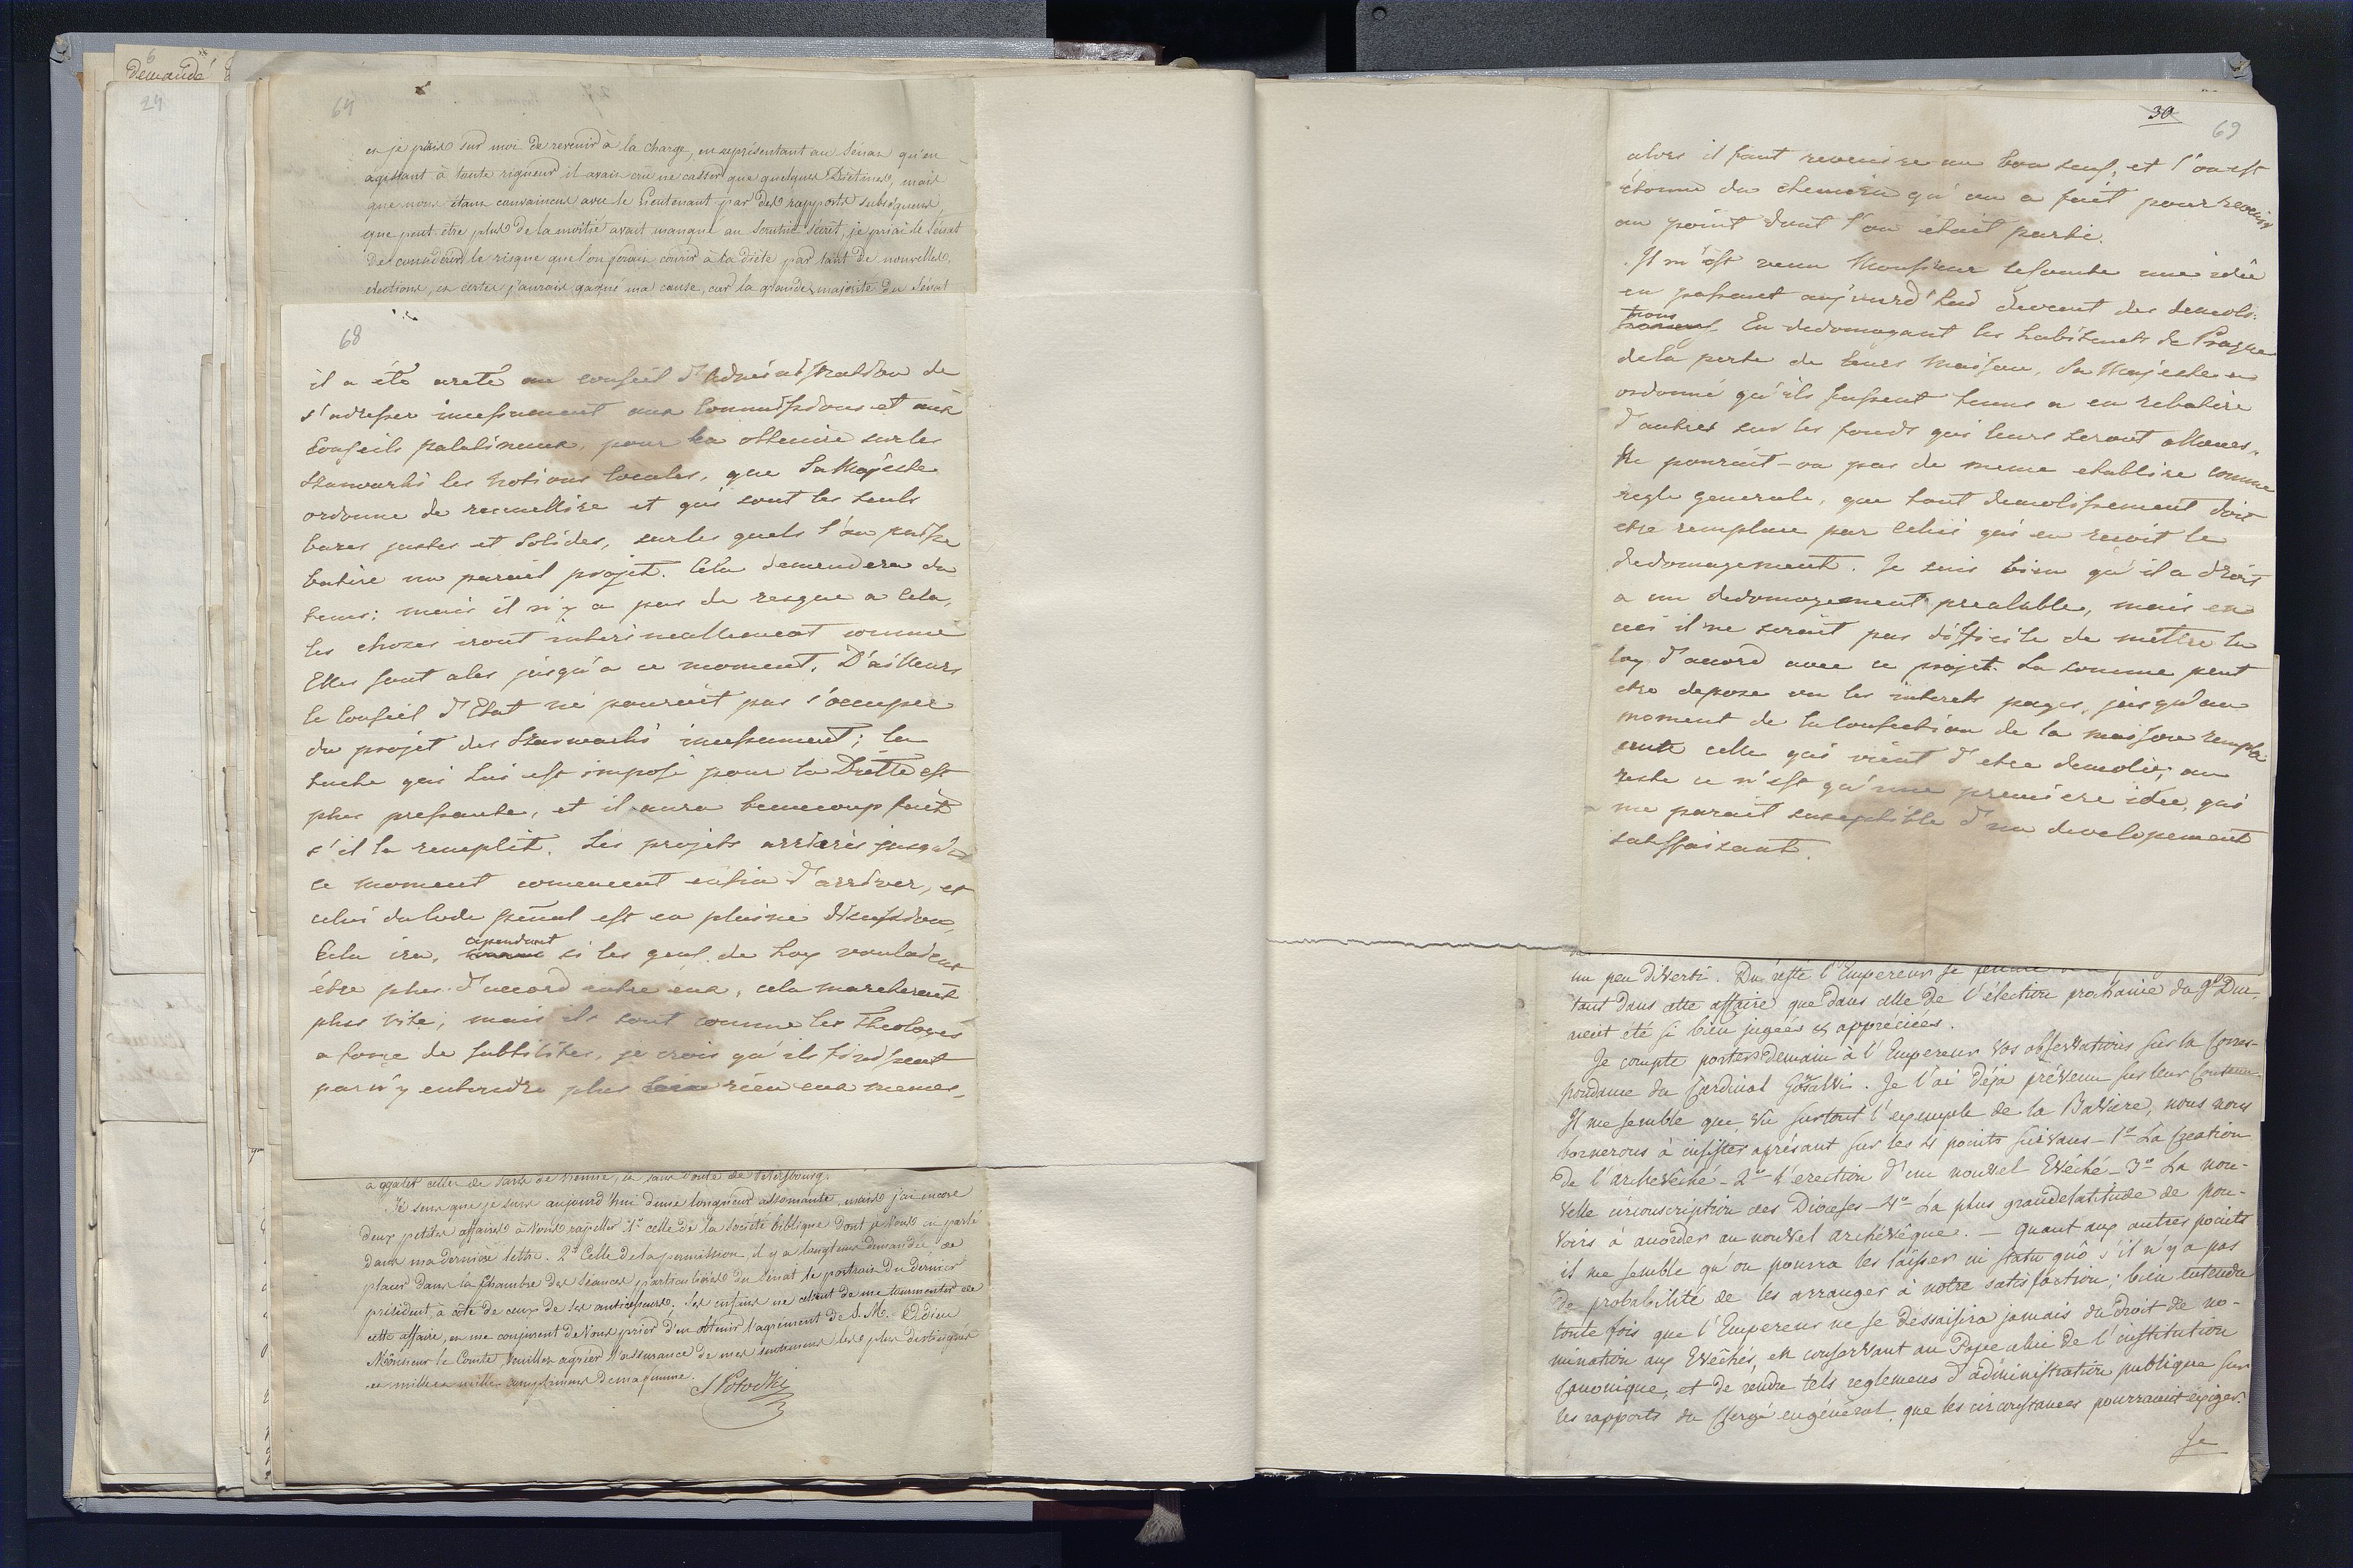 demandé
24
64
et je pris sur moi de revenir à la charge, en représentant au Sénat qu'en
agissant à toute rigueur il avait crû ne casser que quelques Diètines, mais
que nous étant convaincus avec le Lieutenant par des rapports subséquens,
que peut-être plus de la moitié avait manqué au scrutin sécrêt, je priai le Sénat
de considérer le risque que l'on ferait courir à la diète par tant de nouvelles
élections, et certes j'aurais gagné ma cause, car la grande majorité du Sénat
68
il a été areté au conseil d'Administration de
s'adresser incessament aux Commissions et aux
Conseils palatineaux, pour en obtenire sur les
Starworki les notions locales, que Sa Majesté
ordonne de recueillire et qui sont les seuls
bases justes et solides, sur les quels l'on puisse
batire un pareil projet. Cela demandera du
tems; mais il n'y a pas de resque a cela,
les choses iront interimeallement comme
Elles sont ales jusqu'a ce moment. D'ailleurs
le Conseil d'Etat ne pouroit pas s'occuper
du projet des incessament; la
tache qui lui est imposé pour la Diette est
plus pressante, et il aura beaucoup fait
s'il la remplit. Les projets arriérés jusqu'a
ce moment comencent enfin d'arriver, et
celui du Code penal est en pleine discussion,
Cela ira, cependant si les gens de Loy vouloient
être plus d'accord entre eux, cela marcheroit
plus vite; mais ils sont comme les Theologes
a force de subtilités, je crois qu'ils finissent
par n'y entendre plus rien eux memes,
a égaler celles de Paris de Vienne, et sans doute de Petersbourg.
Je sens que je suis aujourd'hui d'une longueur assomante, mais j'ai encore
deux petites affaires à Vous rapeller 1º celle de la société biblique dont je Vous ai parlé
dans ma dernière lettre. 2º Celle de la permission, il y a longtems demandée de
placer dans la Chambre des Séances particulières du Sénat le portrait du dernier
président, à côté de ceux de ses antécesseurs. Ses enfans ne cessent de me tourmenter de
cette affaire, et me conjurent de Vous prier d'en obtenir l'agrément de S. M. Adieu
Monsieur le Comte, Veuillez agréer l'assurance de mes sentimens les plus distingués
et mille et mille complimens de ma femme.
S Potocki
30
69
alors il faut revenire au bon sens, et l'on est
étonné du chemin qu'on a fait pour revenir
au point dont l'on étoit parti.
Il m'est venu Monsieur le Comte une idée
en passant aujourd'hui devant des demoli-
tions. En dedomagant les habitants de Prague
de la perte de leurs maisons, Sa Majesté a
ordonné qu'ils fussent tenus a en rebatire
d'autres sur les fonds qui leurs seront alloues.
Ne pouroit-on pas de meme etablire comme
regle generale, que tout demolissement doit
etre remplace par celui qui en recoit le
dedomagement. Je sais bien qu'il a droit
a un dedomagement prealable, mais en
ceci il ne seroit pas difficile de mettre la
loy d'accord avec ce projet. La somme peut
etre depose ou les interets payes, jusqu'au
moment de la confection de la maison rempla-
cante celle qui vient d'etre demolie; au
reste ce n'est qu'une premiere idee, qui
me parait susceptible d'un developement
satisfaisant.
un peu diverti. Du reste l'Empereur
tant dans cette affaire que dans celle de l'élection prochaine du gd Du.
aient été si bien jugées et appréciées.
Je compte porter Demain à l'Empereur Vos observations sur la Corres-
pondance du Cardinal Gonsalvi. Je l'ai déja prévenu sur leur Contenu.
Il me semble que, vû surtout l'exemple de la Bavière, nous nous
bornerons à insister aprésant sur les 4 points suivans – 1º La Creation
de l'archevêché – 2º L'erection d'un nouvel Evêché – 3º La nou-
velle circonscription des Diocèses – 4º La plus grande latitude de pou-
voirs à accorder au nouvel archévêque. – Quant aux autres points
il me semble qu'on pourra les laisser in statu quô s'il n'y a pas
de probabilité de les arranger à notre satisfaction; bien entendu
toute fois que l'Empereur ne se dessaisira jamais du droit de no-
mination aux Evêchés, en conservant au Pape celui de l'institution
canonique, et de rendre tels reglemens d'administration publique sur
les rapports du Clergé en général, que les circonstances pourraient exiger.
Je